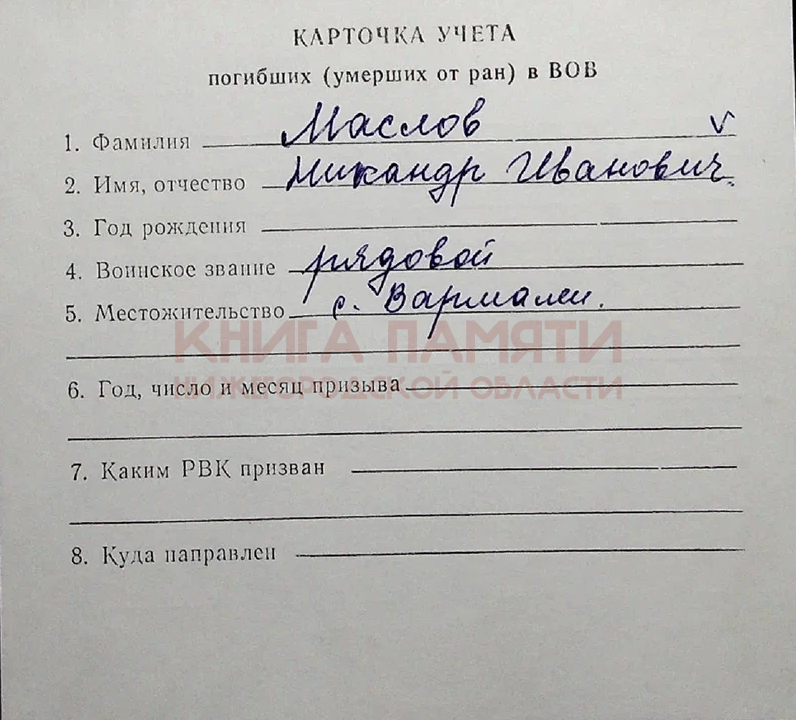 КАРТОЧКА УЧЕТА
погибших (умерших от ран) в ВОВ
1. Фамилия Маслов v
2. Имя, отчество Никандр Иванович.
3. Год рождения
4. Воинское звание рядовой
5. Местожительство с. Вармалеи.
КНИГА ПАМЯТИ
НИЖЕГОРОДСКОЙ ОБЛАСТИ
6. Год, число и месяц призыва
7. Каким РВК призван
8. Куда направлен